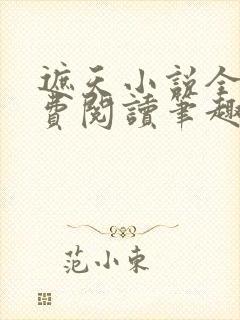 遮天小說全
費閱讀筆趣
范小東